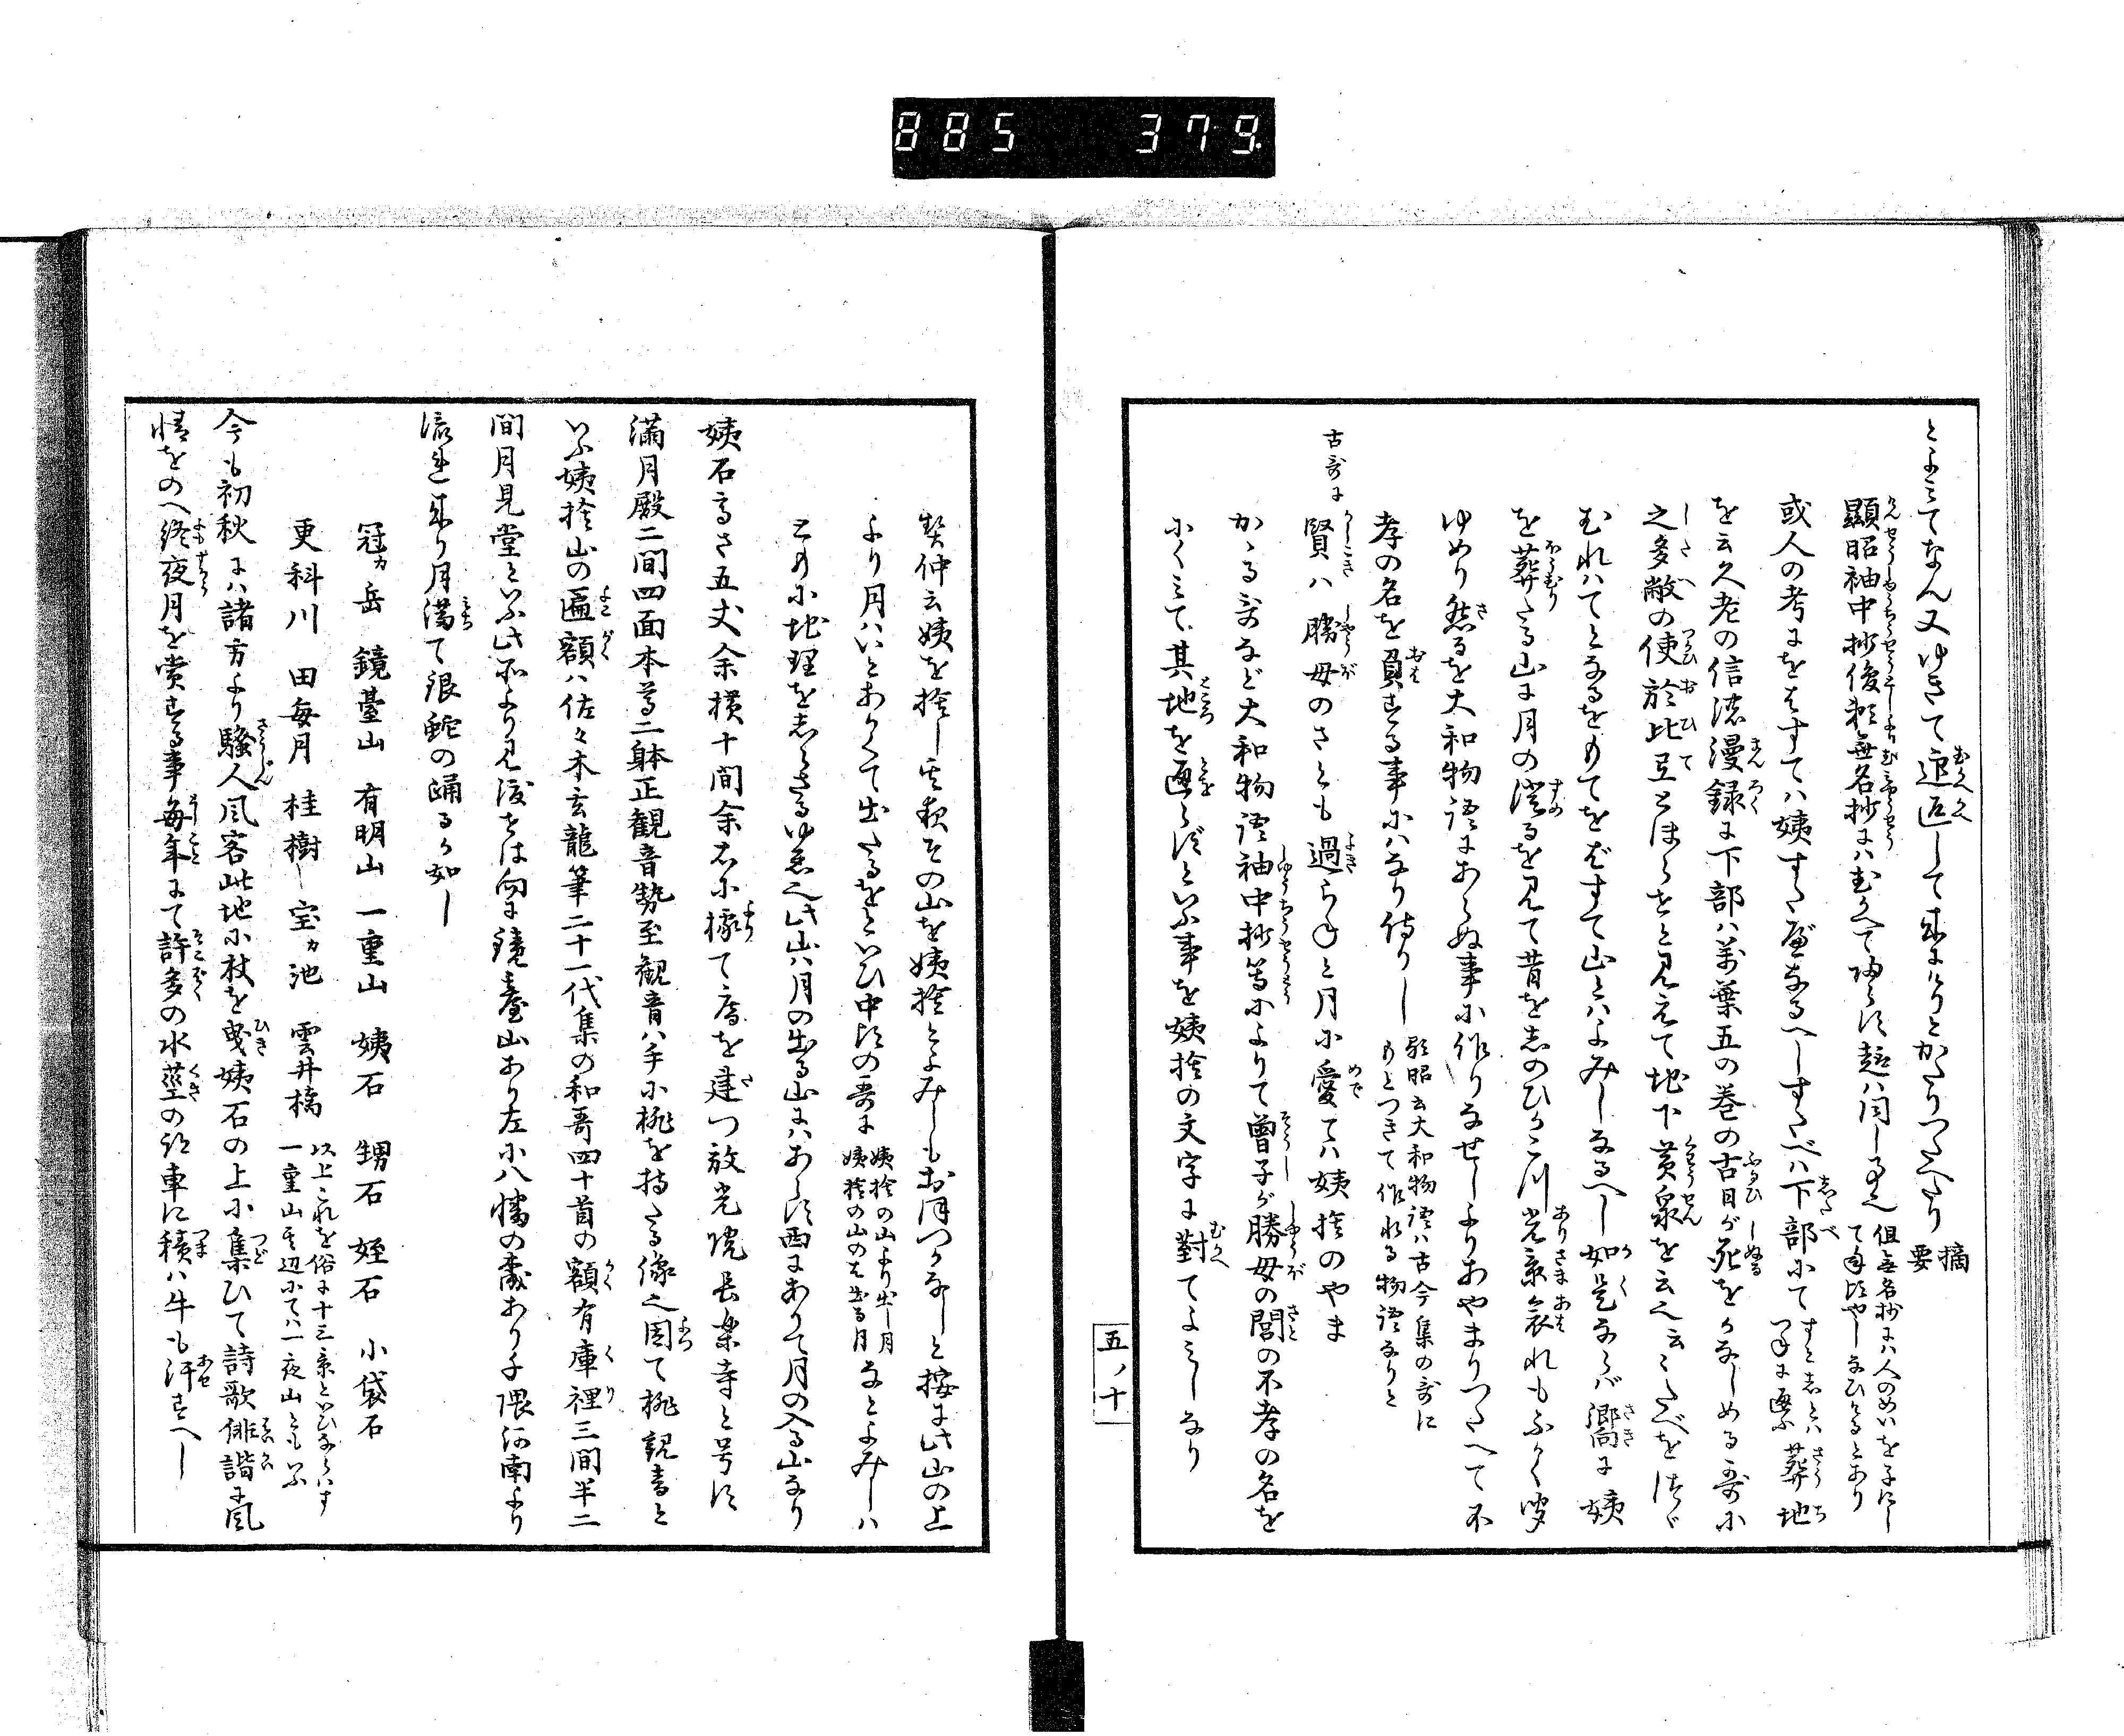 885 379
とよみてなん又ゆきて迎返して来にけりとかたりつたへたり 摘要
顕昭袖中抄俊頼無名抄にハむかへて帰らず趣ハ同し事也 但無名抄にハ人のめいを子にし
て年頃やしなひけるとあり
或人の考にをはすてハ姨すたべなるへしすたべハ下部にて すとしとハ
つねに通ふ 葬地
を云久老の信濃漫録に下部ハ萬葉五の巻の古日が死をかなしめる哥に
之多敝の使於比弖とほらせと見えて地下黄泉を云へ云々たべを
むれハてとなるをもてをばすて山とハよみしなるへし如是ならバ郷向に姨
を葬たる山に月の澄るを見て昔を志のひかこつ光景哀れもふかく
ゆめり然るを大和物語にあらぬ事に作りなせしよりあやまりつたへて不
孝の名を負する事にハなり侍りし 顕昭云大和物語ハ古今集の哥に
もとつきて作れる物語なりと
古哥に 賢ハ勝母のさとも過らねと月に愛てハ姨捨のやま
かゝる哥など大和物語袖中抄等によりて曽子が勝母の閭の不孝の名を
にくミて其地を過らずといふ事を姨捨の文字に對てよミしなり
五ノ十
契仲云姨を捨し其夜その山を姨捨とよみしもおほつかなしと按に此山の上
より月ハいとあかくて出たるをといひ中頃の哥に 姨捨の山より出し月
姨捨の山のは出る月 なとよみしハ
この地理を志らさるゆゑ也此山ハ月の出る山にハあらず西にありて月の入る山なり
姨石高さ五丈余横十間余石に據て庵を建つ放光院長楽寺と号す
満月殿二間四面本尊二躰正観音勢至観音ハ手に桃を持たる像也因て桃観音と
いふ姨捨山の匾額ハ佐々木玄龍筆二十一代集の和哥四十首の額有庫裡三間半二
間月見堂といふ此所より見渡せは向に鏡臺山あり左に八幡の森あり千隈河南より
流れ来り月満て銀蛇の踊るか如し
冠カ岳 鏡臺山 有明山 一重山 姨石 甥石 姪石 小袋石
更科川 田毎月 桂樹 宝カ池 雲井橋 以上これを俗に十三景といひならハす
一重山其辺にてハ一夜山ともいふ
今も初秋にハ諸方より騒人風客此地に杖を曳姨石の上に集ひて詩歌俳諧に風
情をのへ終夜月を賞する事毎年にて許多の水茎の跡車に積ハ牛も汗すへし